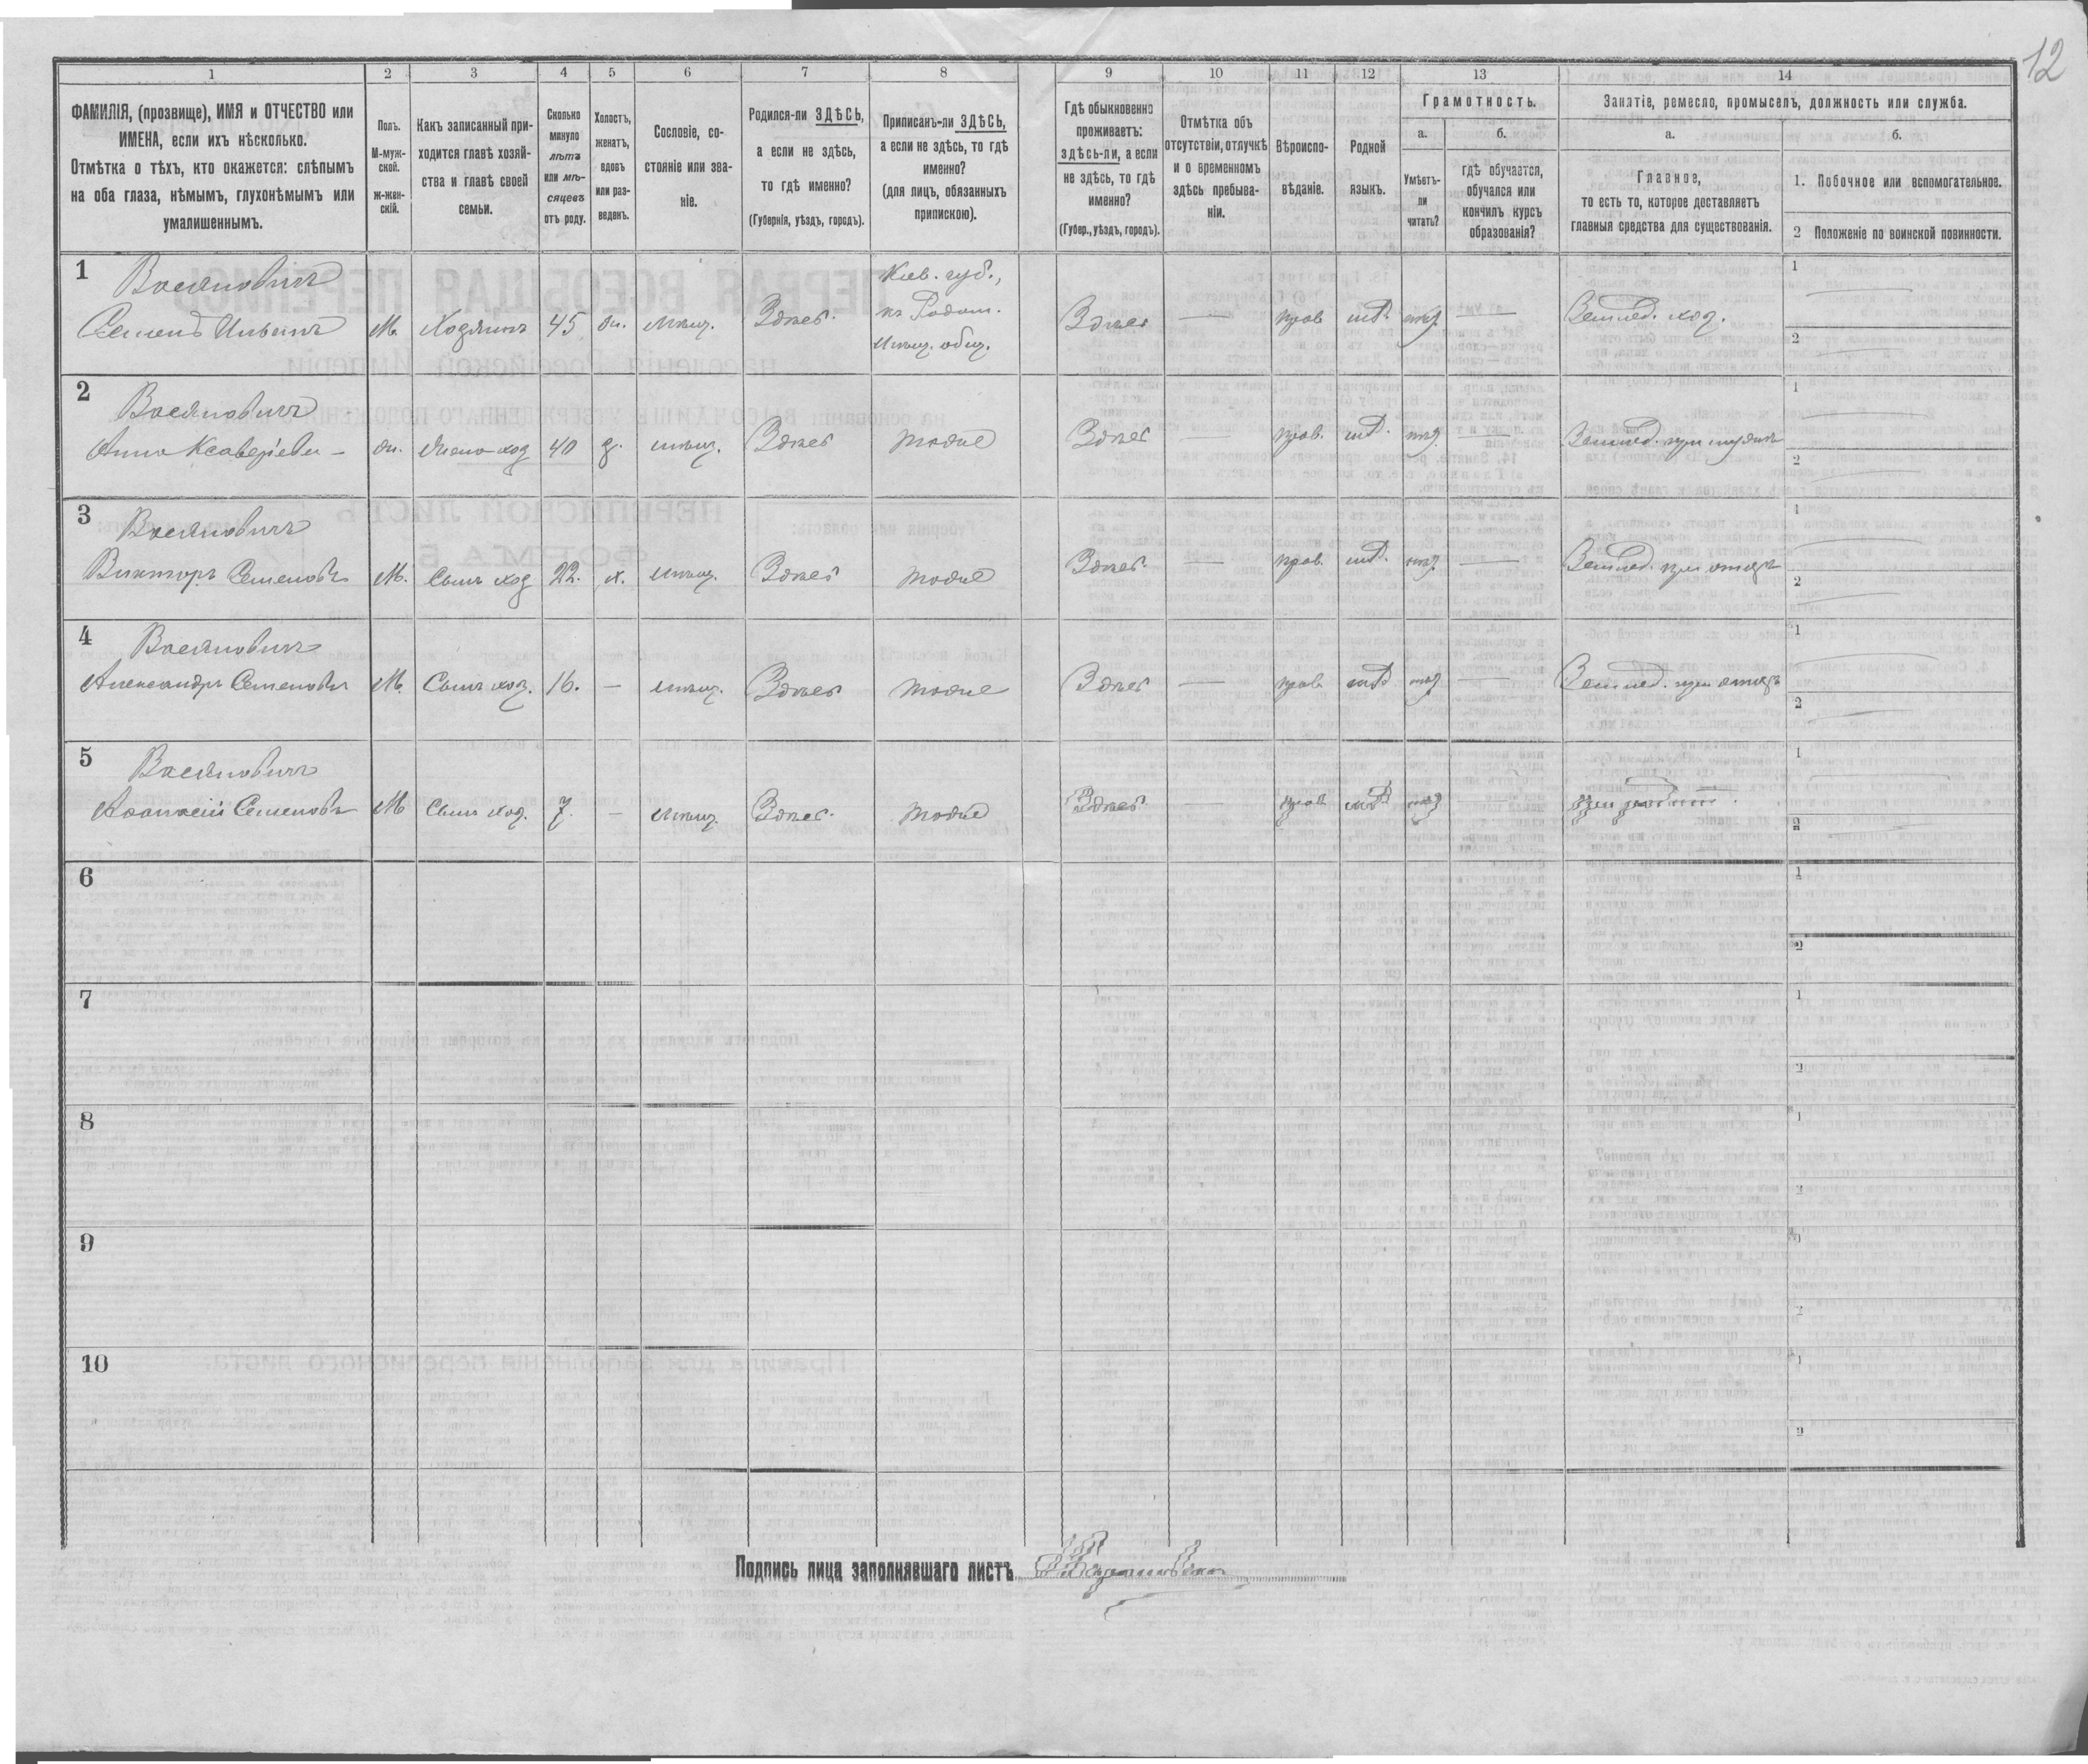 12
1 2 3 4 5 6 7 8 9 10 11 12 13 14
ФАМИЛІЯ, (прозвище), ИМЯ и ОТЧЕСТВО или
ИМЕНА, если ихъ нѣсколько.
Отмѣтка о тѣхъ, кто окажется: слѣпымъ
на оба глаза, нѣмымъ, глухонѣмымъ или
умалишеннымъ.
Полъ.
М-муж-
ской.
ж-жен-
скій.
Какъ записанный при-
ходится главѣ хозяй-
ства и главѣ своей
семьи.
Сколько
минуло
лѣтъ
или мѣ-
сяцевъ
отъ роду.
Холостъ,
женатъ,
вдовъ
или раз-
веденъ.
Сословіе, со-
стояніе или зва-
ніе.
Родился-ли ЗДѢСЬ,
а если не здѣсь,
то гдѣ именно?
(Губернія, уѣздъ, городъ).
Приписанъ-ли ЗДѢСЬ,
а если не здѣсь, то гдѣ
именно?
(для лицъ, обязанныхъ
припискою).
Гдѣ обыкновенно
проживаетъ:
здѣсь-ли, а если
не здѣсь, то гдѣ
именно?
(Губер., уѣздъ, городъ).
Отмѣтка объ
отсутствіи, отлучкѣ
и о временномъ
здѣсь пребыва-
ніи.
Вѣроиспо-
вѣданіе.
Родной
языкъ.
Грамотность.
а.
Умѣетъ-
ли
читать?
б.
гдѣ обучается,
обучался или
кончилъ курсъ
образованія?
Занятіе, ремесло, промыселъ, должность или служба.
а.
Главное,
то есть то, которое доставляетъ
главныя средства для существованія.
б.
1. Побочное или вспомогательное.
2 Положеніе по воинской повинности.
1
Васьяновичъ
Семенъ
М. Хозяинъ 45 мѣщ. Здѣсь. Кіев. губ.,
мѣщ. общ.
Здѣсь — прав — Землед. хоз.
1
2
2
Васьяновичъ
Анна Ксаверіева
жен. Жена хоз 40 з. мѣщ. Здѣсь тоже Здѣсь — прав. — Землед. при мужѣ
1
2
3
Васьяновичъ
Викторъ Семеновъ
М. Сынъ хоз 22. х. мѣщ. Здѣсь тоже Здѣсь прав. — Землед. при отцѣ
1
2
4
Васьяновичъ
Александръ Семеновъ
М Сынъ хоз. 16. — мѣщ. Здѣсь тоже Здѣсь — прав — Землед. при отцѣ
1
2
5
Васьяновичъ
Семеновъ
М Сынъ хоз. 7. — мѣщ. Здѣсь. тоже Здѣсь — прав — при
1
2
6
1
2
7
1
2
8
1
2
9
1
2
10
1
2
Подпись лица заполнявшаго листъ